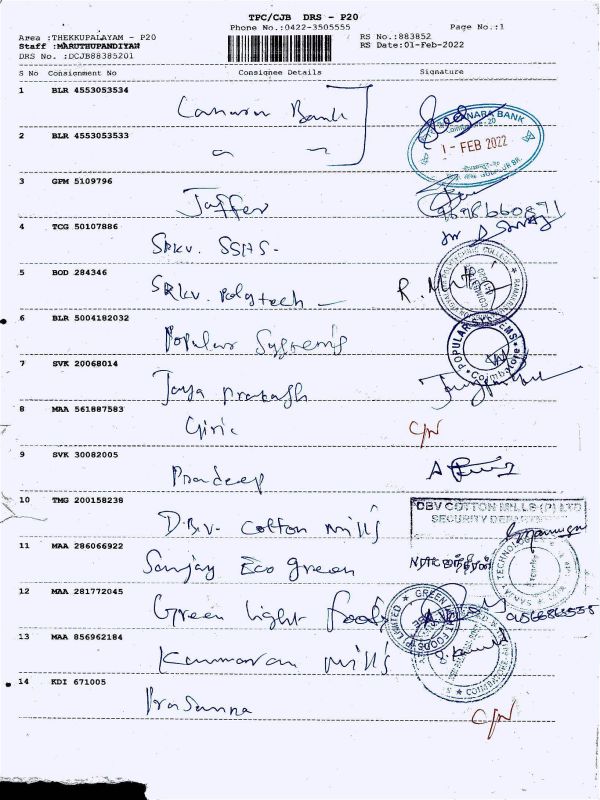 TPC/CJB DRS - P20
Phone No.:0422-3505555 Page No.:1
Area :THEKKUPALAYAM - P20 RS No.:883852
Staff :MARUTHUPANDIYAN RS Date:01-Feb-2022
DRS No. :DCJB88385201
S No Consignment No Consignee Details Signature
1 BLR 4553053534
Canara Bank
2 BLR 4553053533
CANARA BANK
1 - FEB 2022
3 GPM 5109796
Jaffer
4 TCG 50107886
SRKV. SSHS-
5 BOD 284346
SRKV. Polytech
R. Muthu
6 BLR 5004182032
Popular Systems
POPULAR SYSTEMS
Coimbatore
7 SVK 20068014
Jaya Prakash
8 MAA 561887583
Giri
9 SVK 30082005
Pradeep
10 TMG 200158238
D.B.V. Cotton mills
DBV COTTON MILLS (P) LTD
SECURITY DEPARTMENT
11 MAA 286066922
Sanjay Eco green
12 MAA 281772045
Green light foods
13 MAA 856962184
Kanmavan mills
14 KDI 671005
Prasanna